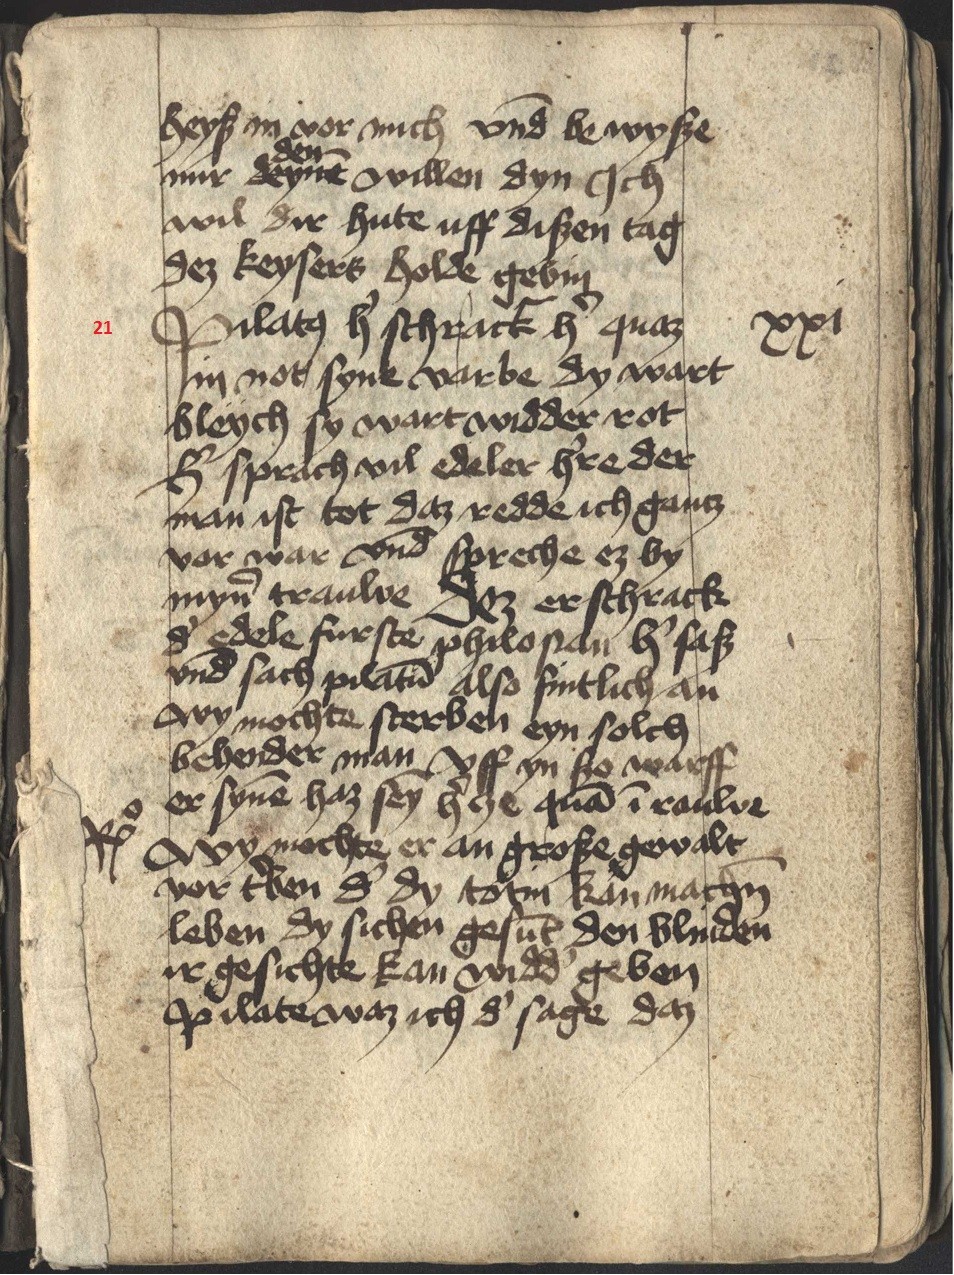 heyß in vor mich vnd̄ be wyße
den
mir deynē willen dyn Jch
wil dir hute uff dißen tag
dez keysers holde gebin
21 Pilatꝰ h' schrack h' quaz xxi
in not syne varbe dy wart
bleych sy wart widder rot
H' sprach vil edeler h're der
man ist tot daz redde ich gantz
vor war vnd̄ spreche ez by
myn̄ trauwe Dez erschrack
d' edele furste philosian h' saß
vnd̄ sach pilatū also fintlich an
wy mochte sterben eyn solch
behender man Vff yn ßo warff
er synē haz sey h'cze quā ī rauwe
Rº Wy mochte er an große gewalt
vor t'ben d' dy totin kan machn̄
leben dy sichen gesūt den blinden
ir gesichte kan widd' geben
Pilate waz ich d' sage daz